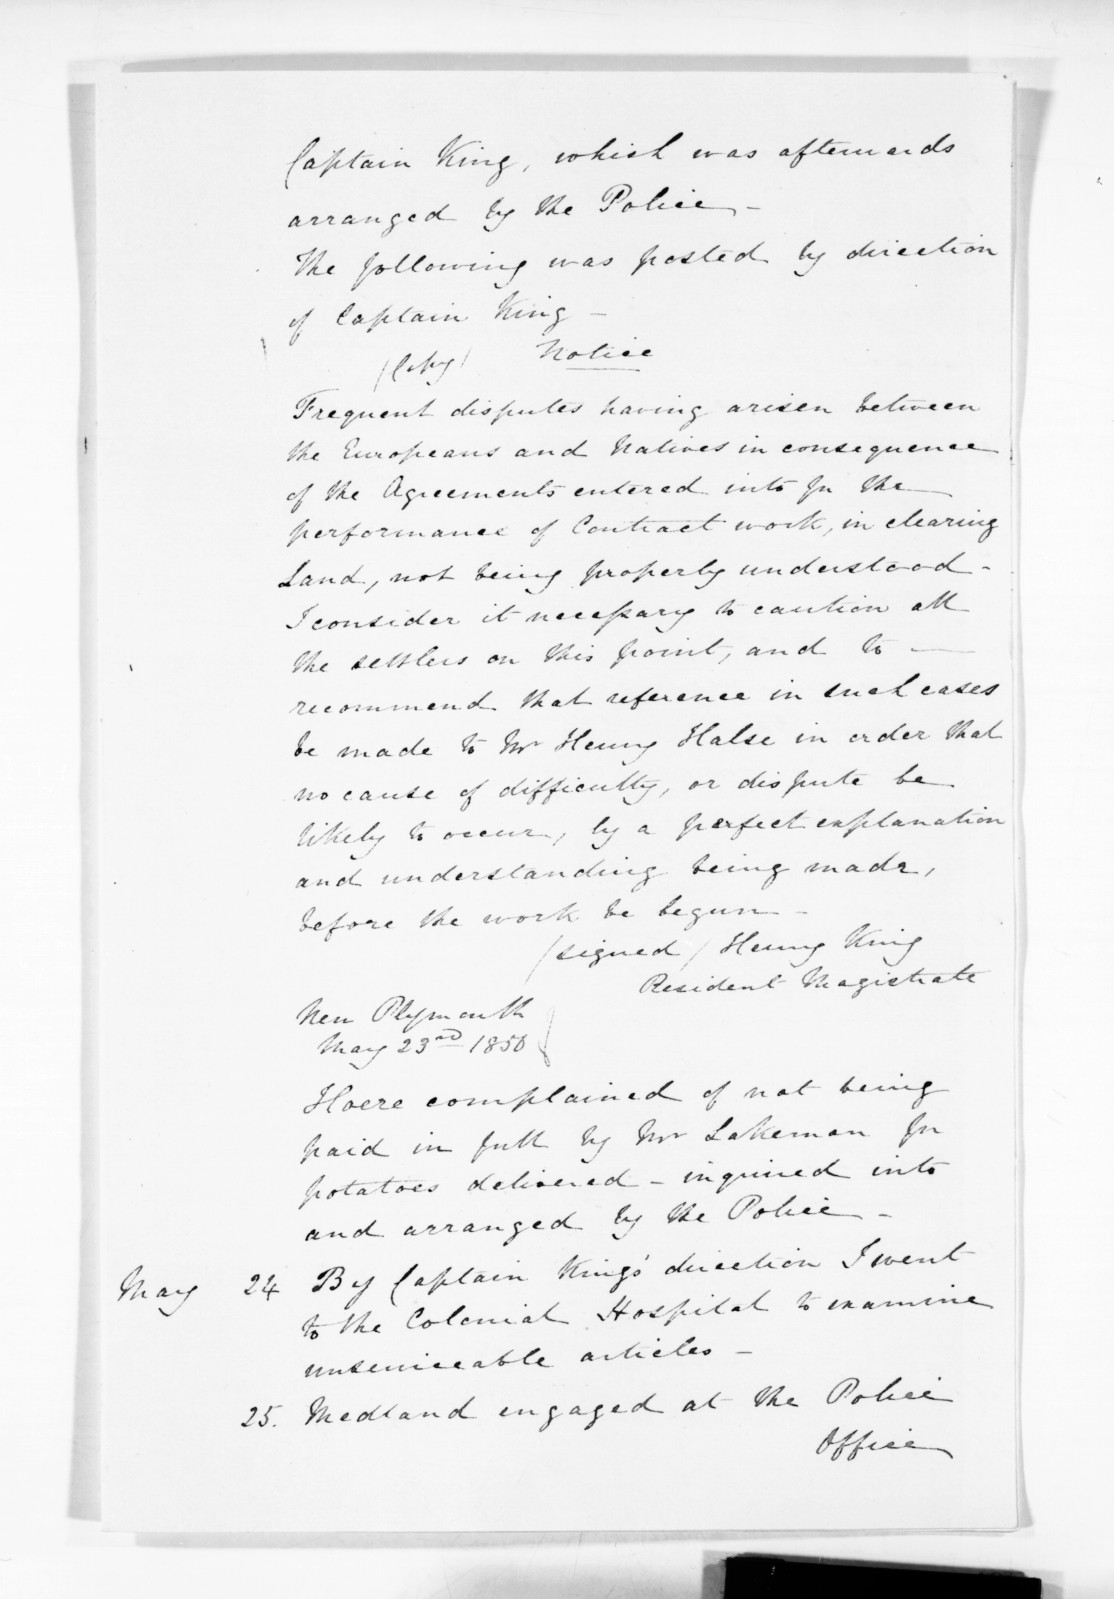 Captain King, which was afterwards
arranged by the Police –
The following was posted by direction
of Captain King –
(Copy) Notice
Frequent disputes having arisen between
the Europeans and Natives in consequence
of the Agreements entered into for the
performance of Contract work, in clearing
Land, not being properly understood –
I consider it necessary to caution all
the settlers on this point, and to —
recommend that reference in such cases
be made to Mr Henry Halse in order that
no cause of difficulty, or dispute be
likely to occur, by a perfect explanation
and understanding being made,
before the work be begun –
(signed) Henry King
Resident Magistrate
New Plymouth
May 23rd 1850
Hoere complained of not being
paid in full by Mr Lakeman for
potatoes delivered – inquired into
and arranged by the Police –
May 24 By Captain King's direction I went
to the Colonial Hospital to examine
unserviceable articles –
25. Medland engaged at the Police
Office